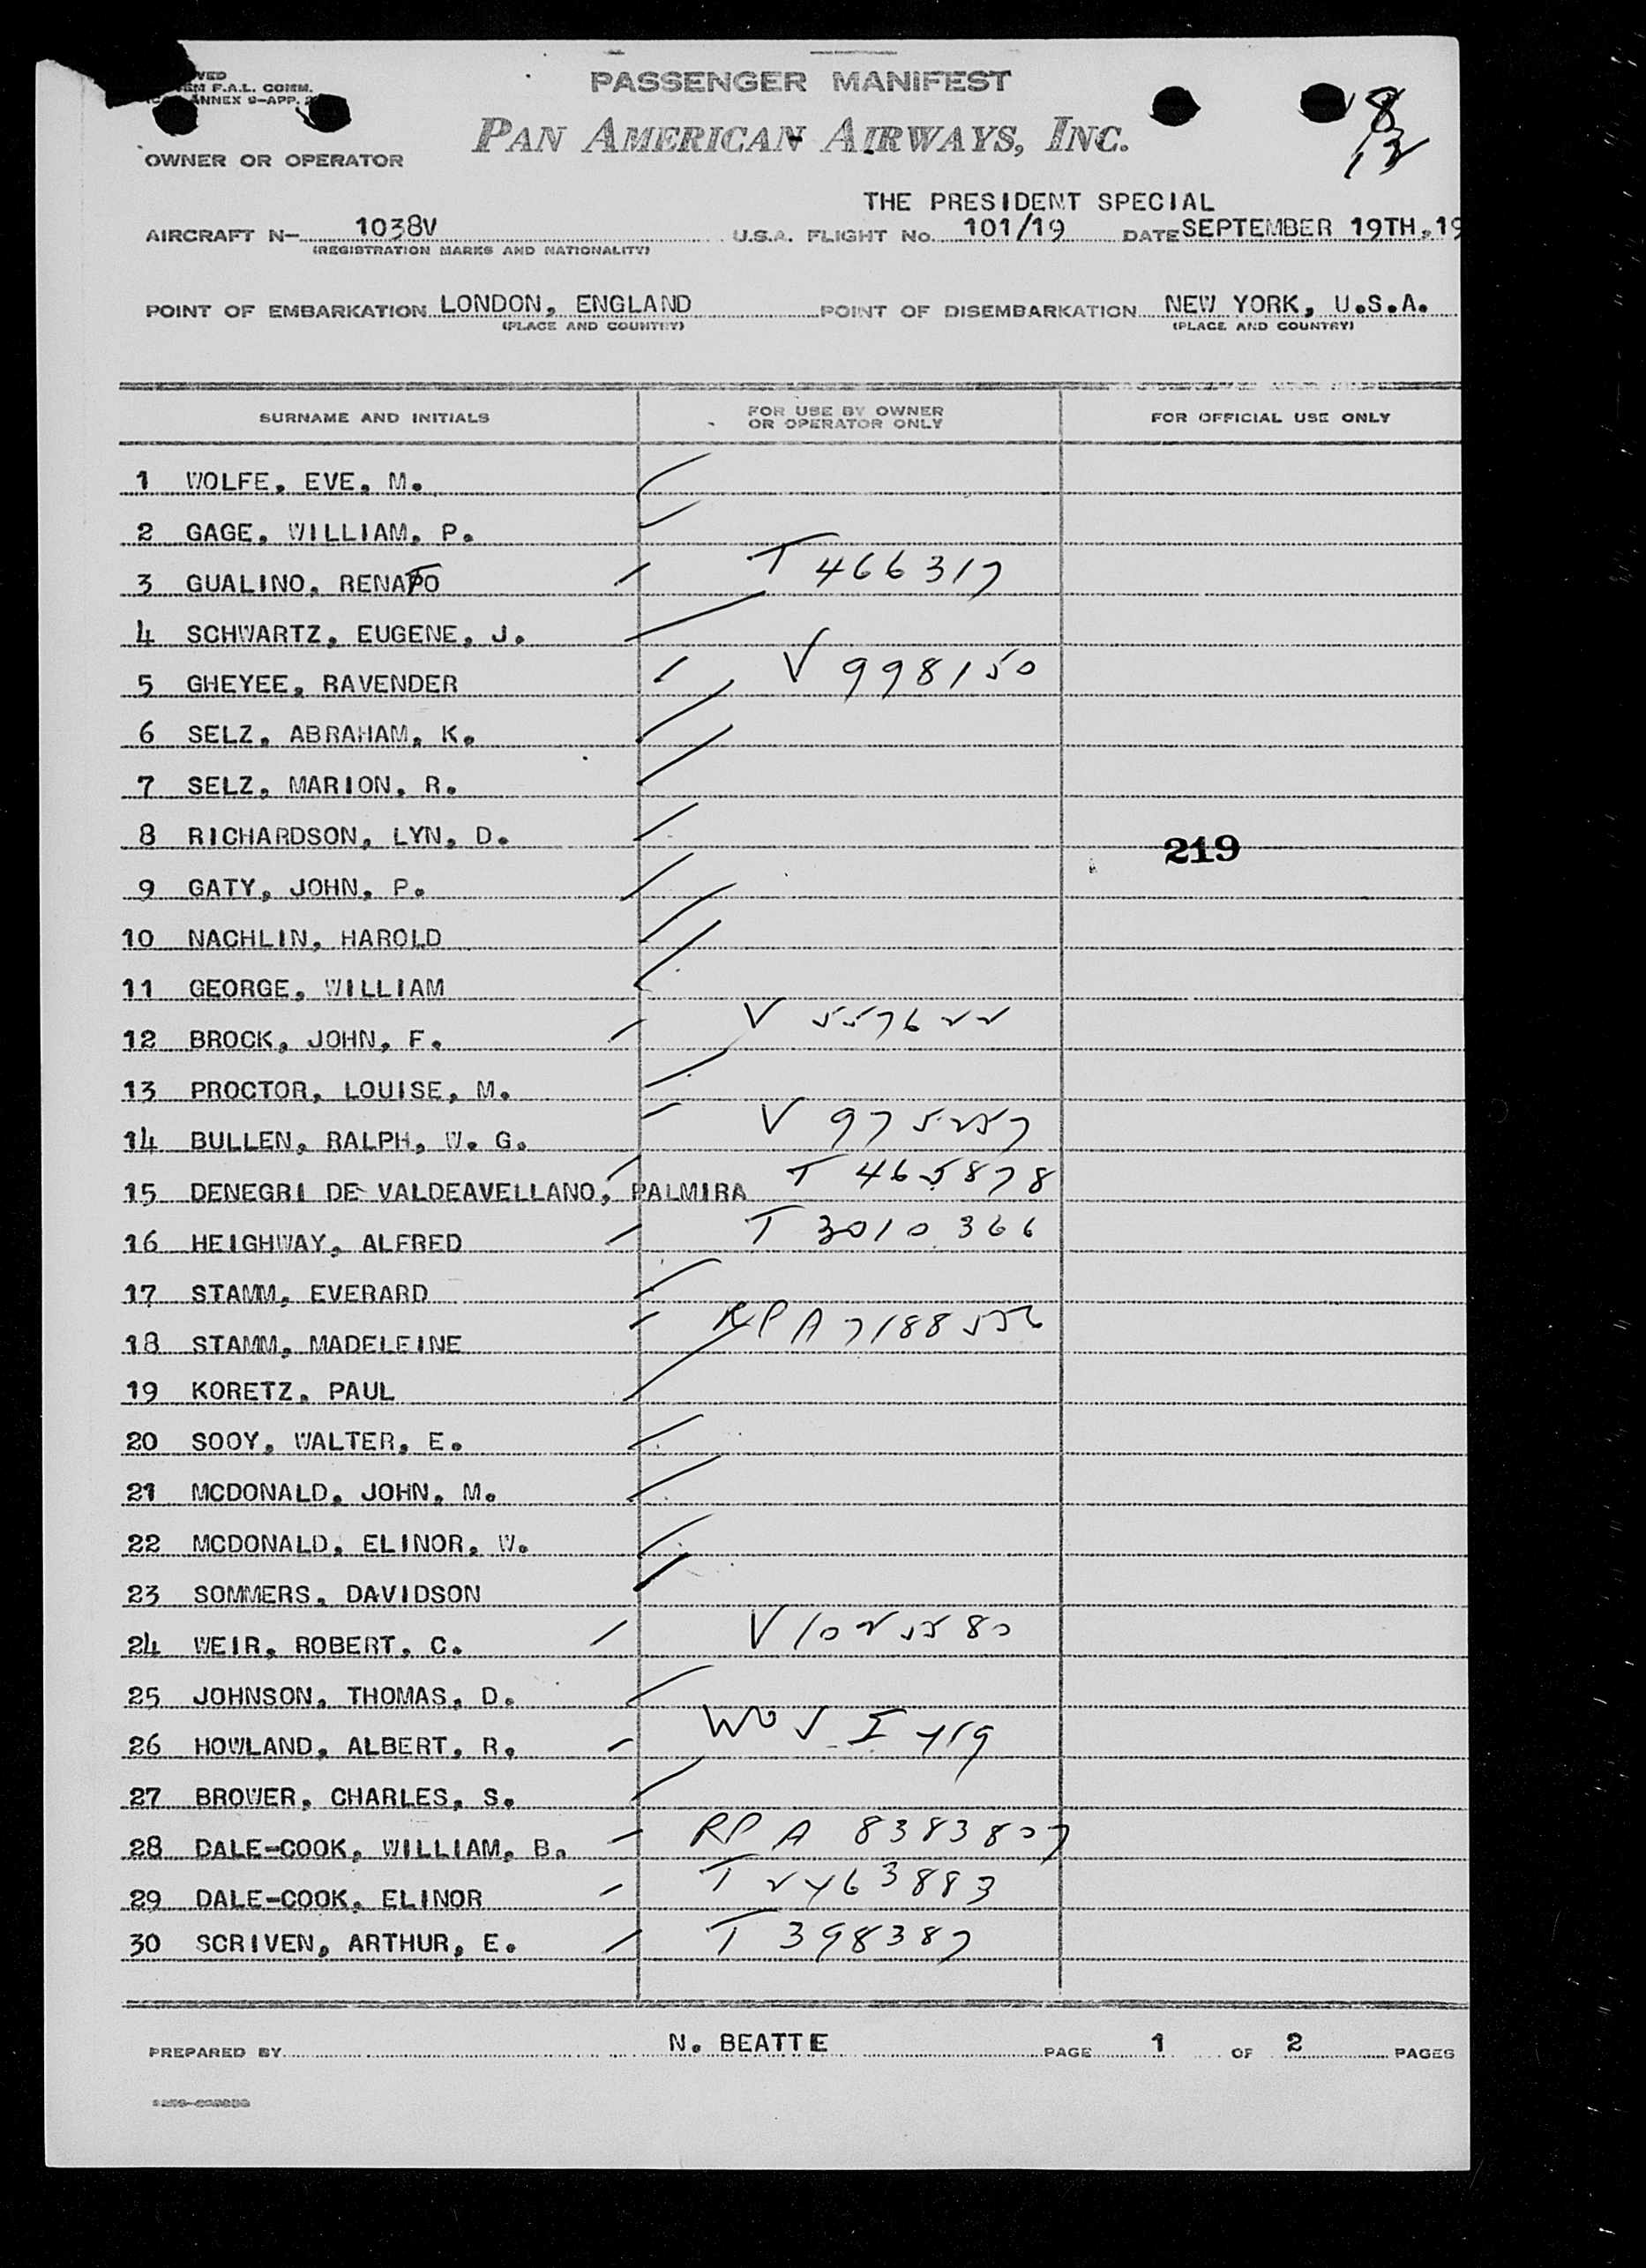 VED
F.A.L. COMM.
ANNEX 9-APP. 2
PASSENGER MANIFEST
PAN AMERICAN AIRWAYS, INC.
8
13
OWNER OR OPERATOR
THE PRESIDENT SPECIAL
AIRCRAFT N- 1038V U.S.A. FLIGHT No. 101/19 DATE SEPTEMBER 19TH, 19
(REGISTRATION MARKS AND NATIONALITY)
POINT OF EMBARKATION LONDON, ENGLAND POINT OF DISEMBARKATION NEW YORK, U.S.A.
(PLACE AND COUNTRY) (PLACE AND COUNTRY)
SURNAME AND INITIALS FOR USE BY OWNER OR OPERATOR ONLY FOR OFFICIAL USE ONLY
1 WOLFE, EVE, M.
2 GAGE, WILLIAM, P.
3 GUALINO, RENATO T 466317
4 SCHWARTZ, EUGENE, J.
5 GHEYEE, RAVENDER V 998150
6 SELZ, ABRAHAM, K.
7 SELZ, MARION, R.
8 RICHARDSON, LYN, D. 219
9 GATY, JOHN, P.
10 NACHLIN, HAROLD
11 GEORGE, WILLIAM
12 BROCK, JOHN, F. V 557622
13 PROCTOR, LOUISE, M.
14 BULLEN, RALPH, W. G. V 975257
15 DENEGRI DE VALDEAVELLANO, PALMIRA T 465878
16 HEIGHWAY, ALFRED T 3010366
17 STAMM, EVERARD
18 STAMM, MADELEINE RP A7188556
19 KORETZ, PAUL
20 SOOY, WALTER, E.
21 MCDONALD, JOHN, M.
22 MCDONALD, ELINOR, W.
23 SOMMERS, DAVIDSON
24 WEIR, ROBERT, C. V1025580
25 JOHNSON, THOMAS, D.
26 HOWLAND, ALBERT, R. I 419
27 BROWER, CHARLES, S.
28 DALE-COOK, WILLIAM, B. RP A 8383807
29 DALE-COOK, ELINOR T 2463883
30 SCRIVEN, ARTHUR, E. T 398387
PREPARED BY N. BEATTE PAGE 1 OF 2 PAGES